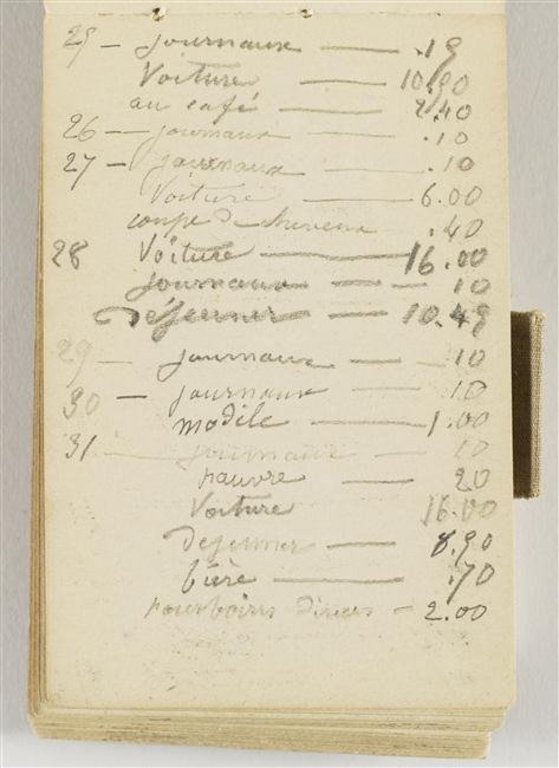 25 — journaux — .15
Voiture — 10.90
au café — 2.40
26 — journaux — .10
27 — journaux — .10
Voiture — 6.00
coupe de cheveux .40
28 Voiture — 16.00
journaux — — 10
Déjeuner — — 10.45
29 — journaux — — 10
30 — journaux — 10
modèle — 1.00
31 — journaux — 10
pauvre — 20
Voiture 16.00
Dejeuner — 8.90
bière — .70
pourboires divers — 2.00